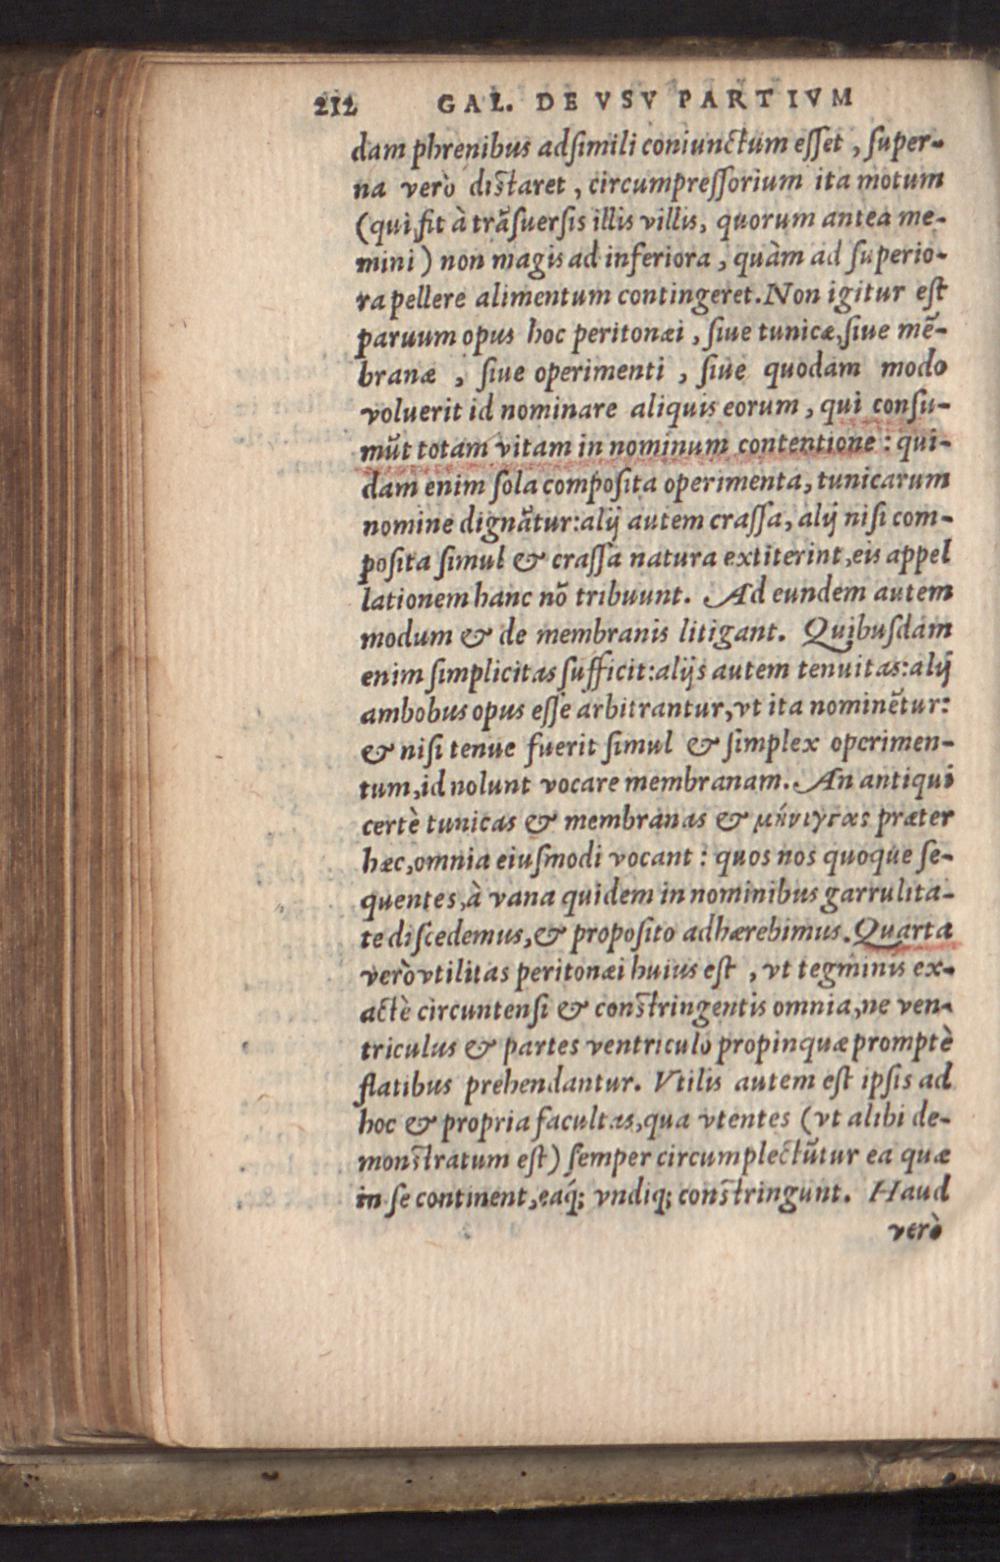 212 GAL. DE VSV PARTIVM
dam phrenibus adsimili coniunctum esset, super-
na verò distaret, circumpressorium ita motum
(qui fit à trãsuersis illis villis, quorum antea me-
mini) non magis ad inferiora, quàm ad superio-
ra pellere alimentum contingeret. Non igitur est
paruum opus hoc peritonæi, siue tunicæ, siue mẽ-
branæ, siue operimenti, siue quodam modo
voluerit id nominare aliquis eorum, qui consu-
mũt totam vitam in nominum contentione: qui-
dam enim sola composita operimenta, tunicarum
nomine dignãtur: alij autem crassa, alij nisi com-
posita simul & crassa natura extiterint, eis appel
lationem hanc nõ tribuunt. Ad eundem autem
modum & de membranis litigant. Quibusdam
enim simplicitas sufficit: alijs autem tenuitas: alij
ambobus opus esse arbitrantur, vt ita nominẽtur:
& nisi tenue fuerit simul & simplex operimen-
tum, id nolunt vocare membranam. An antiqui
certè tunicas & membranas & μήνιγγας præter
hæc, omnia eiusmodi vocant: quos nos quoque se-
quentes, à vana quidem in nominibus garrulita-
te discedemus, & proposito adhærebimus. Quarta
verò vtilitas peritonæi huius est, vt tegminis ex-
actè circuntensi & constringentis omnia, ne ven-
triculus & partes ventriculo propinquæ promptè
flatibus prehendantur. Vtilis autem est ipsis ad
hoc & propria facultas, qua vtentes (vt alibi de-
monstratum est) semper circumplectũtur ea quæ
in se continent, eaq́; vndiq; constringunt. Haud
verò